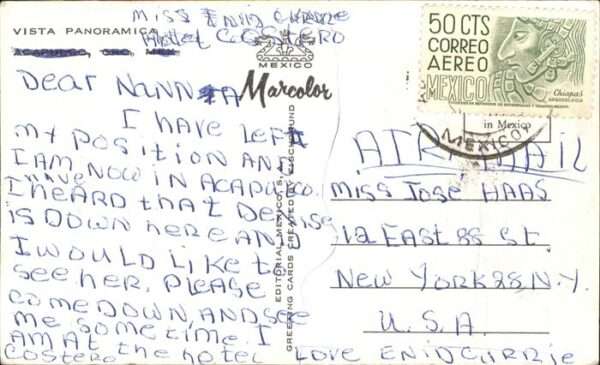 Miss Enid Currie
Hotel Costero
VISTA PANORAMICA
ACAPULCO, GRO. MEX.
Dear Nanna
I HAVE LEFT
MY POSITION AND
I AM NOW IN ACAPULCO.
I have HEARD that Denise
IS DOWN HERE AND
I WOULD LIKE to
SEE HER. PLEASE
COME DOWN, AND SEE
ME SOME TIME. I
AM At the Hotel
COSTERO
LOVE ENID CURRIE
MEXICO
Marcolor
EDITORIAL MEXICO, S.A.
GREETING CARDS CREATED BY FISCHGRUND
50 CTS
CORREO
AEREO
MEXICO
Chiapas
ARQUEOLOGIA
in Mexico
MEXICO
AIR MAIL
MISS JOSE HAAS
12 EAST 88 St.
NEW YORK 28 N.Y.
U.S.A